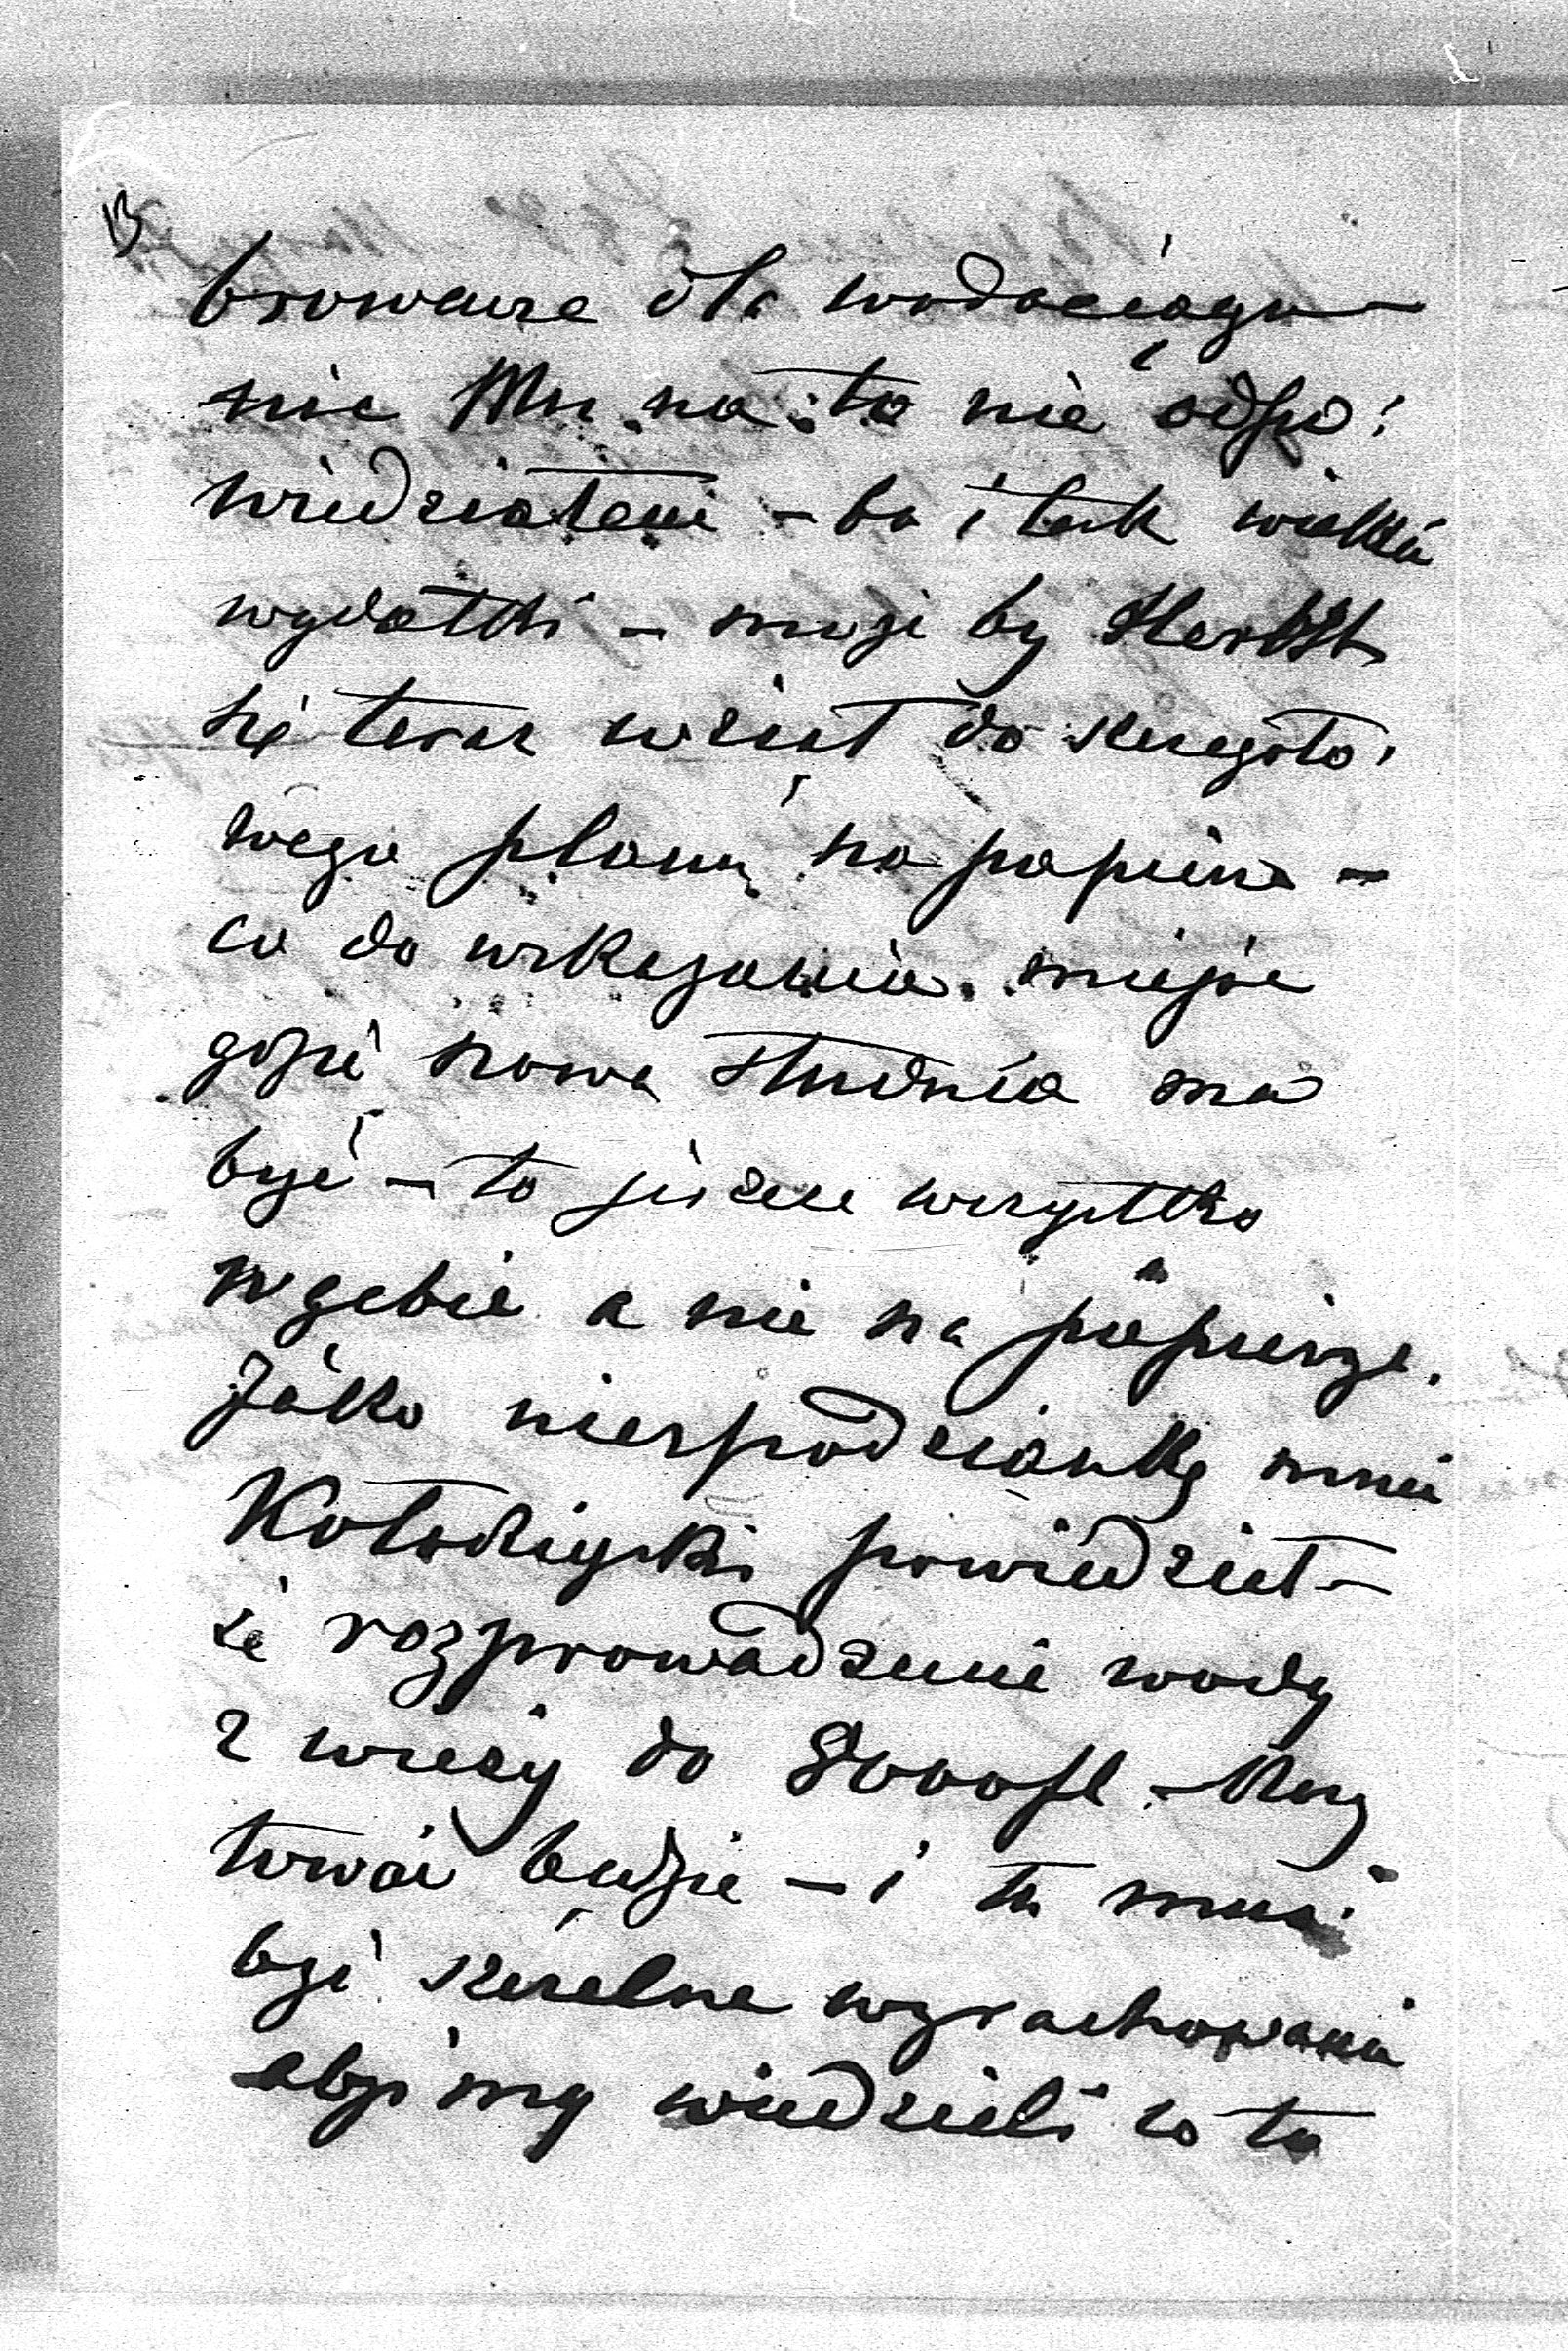 13
browarze dla wodociągu —
nic Mu na to nie odpo:
wiedziałem — bo i tak wielkie
wydatki — može by Herbst
się teraz wziął do szczegóło:
wego planu na papierze —
co do wskazania miejsc
gdzie nowa studnia ma
być — to jeszcze wszystko
w gębie a nie na papierze.
Jako niespodziankę mnie
Kołodziejski powiedział —
że rozprowadzenie wody
z wieży do 8000 fl. — kosz
tować będzie — i tu musi
być szczelne wyrachowanie
abyśmy wiedzieli co to